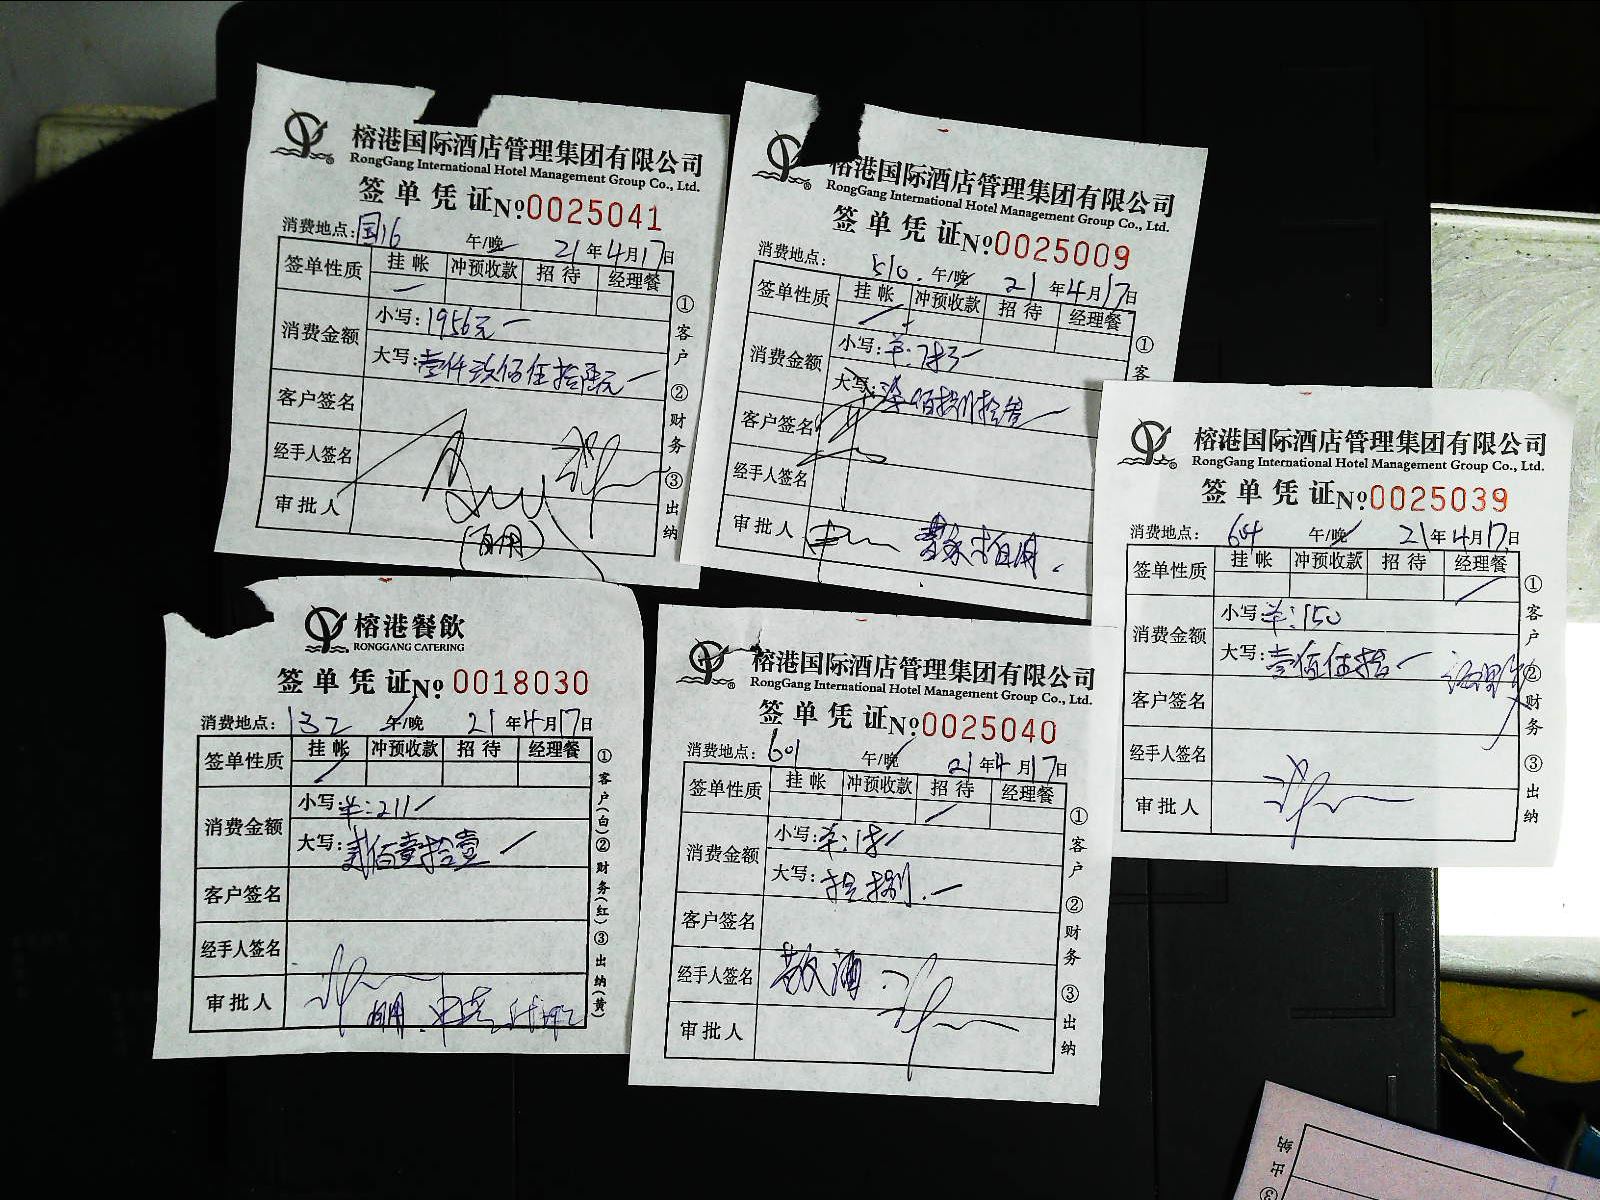 榕港国际酒店管理集团有限公司
RongGang International Hotel Management Group Co., Ltd.
签单凭证№0025041
消费地点:国16 午/晚 21年4月17日
签单性质 挂帐 冲预收款 招待 经理餐
消费金额 小写:1956元
大写:壹仟玖佰伍拾陆元
客户签名
经手人签名
审批人
(自用)
①客户 ②财务 ③出纳
榕港国际酒店管理集团有限公司
RongGang International Hotel Management Group Co., Ltd.
签单凭证№0025009
消费地点: 510. 午/晚 21年4月17日
签单性质 挂帐 冲预收款 招待 经理餐
消费金额 小写:
大写:
客户签名
经手人签名
审批人
①客
榕港国际酒店管理集团有限公司
RongGang International Hotel Management Group Co., Ltd.
签单凭证№0025039
消费地点: 604 午/晚 21年4月17日
签单性质 挂帐 冲预收款 招待 经理餐
消费金额 小写:¥:150
大写:壹佰伍拾
客户签名
经手人签名
审批人
①客户 ②财务 ③出纳
榕港餐飲
RONGGANG CATERING
签单凭证№0018030
消费地点:132 午/晚 21年4月17日
签单性质 挂帐 冲预收款 招待 经理餐
消费金额 小写:¥:211
大写:贰佰壹拾壹
客户签名
经手人签名
审批人 自用
①客户(白)②财务(红)③出纳(黄)
榕港国际酒店管理集团有限公司
RongGang International Hotel Management Group Co., Ltd.
签单凭证№0025040
消费地点:601 午/晚 21年4月17日
签单性质 挂帐 冲预收款 招待 经理餐
消费金额 小写:¥:18
大写:拾捌.
客户签名
经手人签名 敬酒
审批人
①客户 ②财务 ③出纳
出纳
③